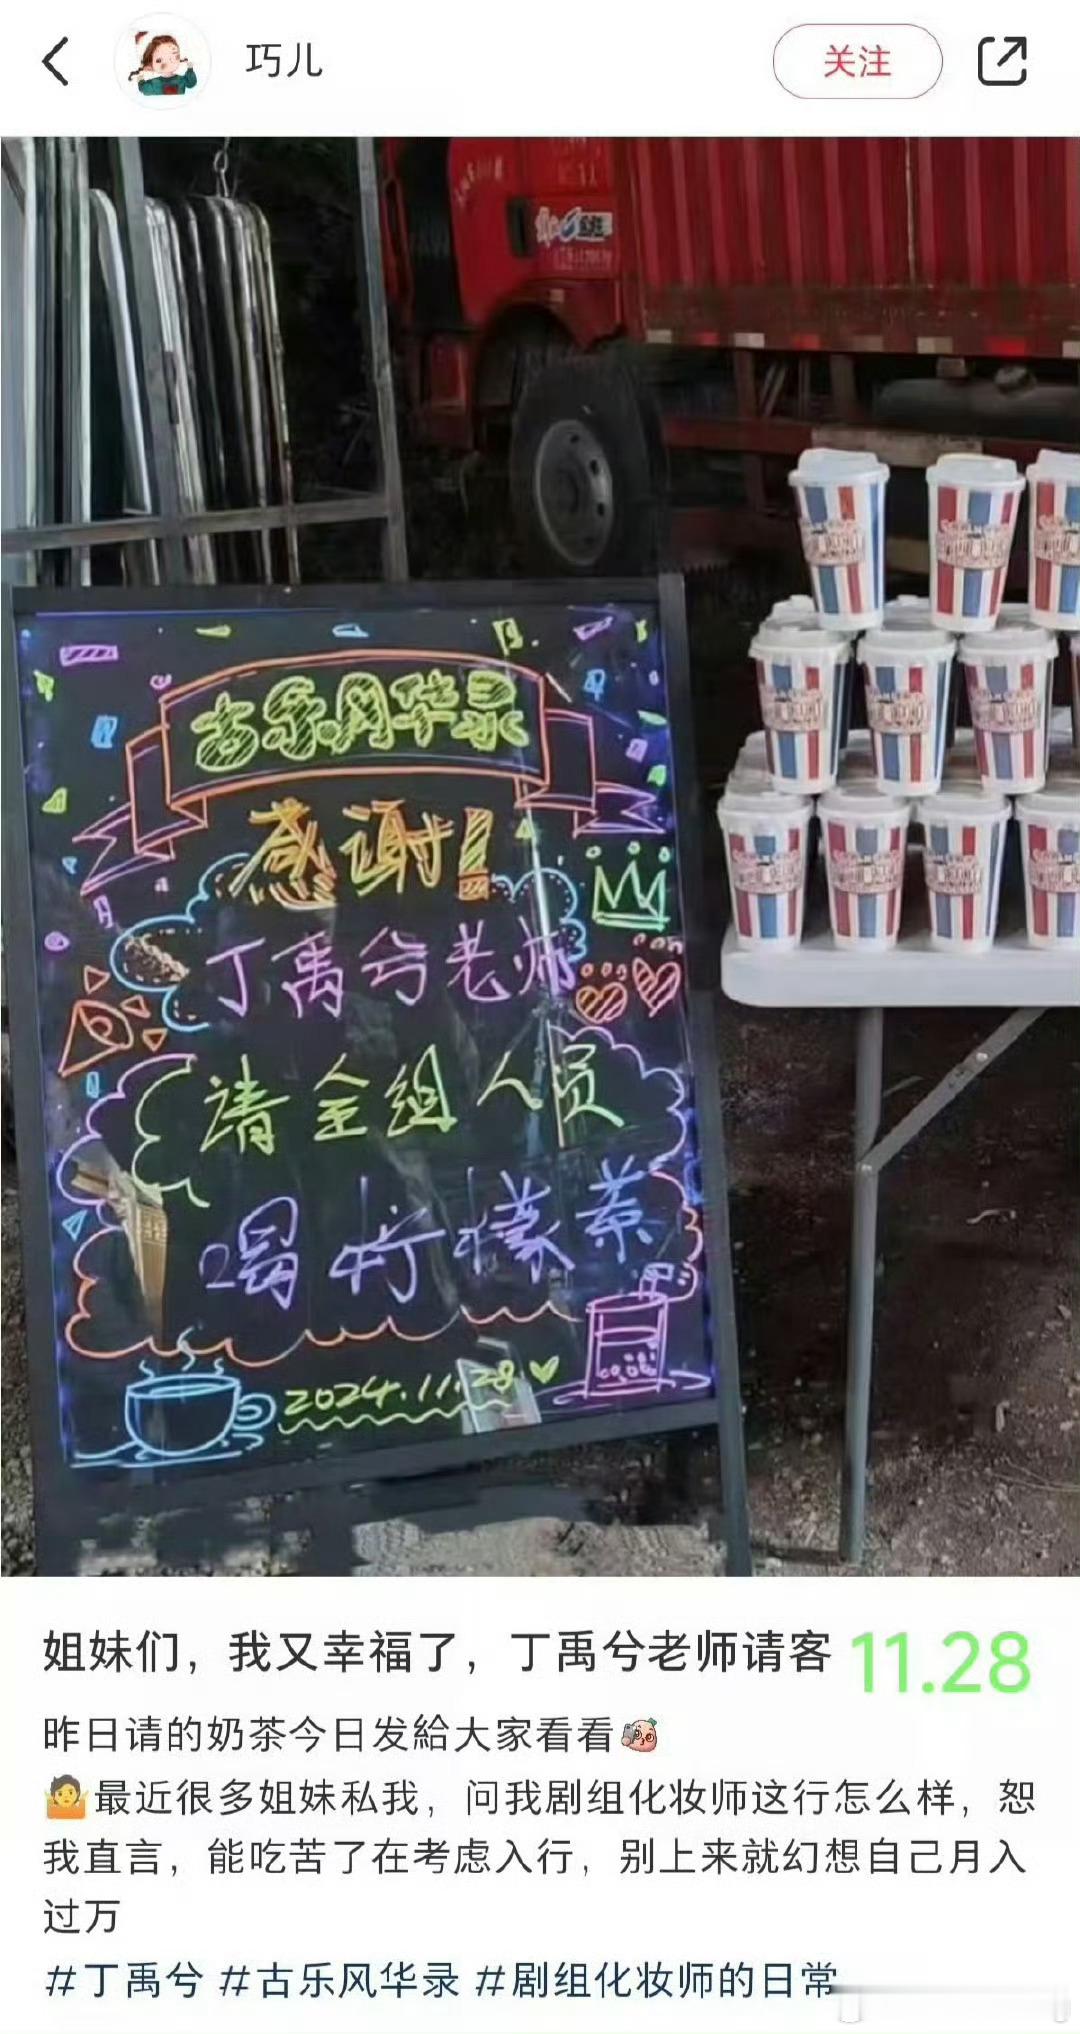 巧儿
关注
古乐风华录
感谢!
丁禹兮老师
请全组人员
喝柠檬茶
2024.11.28
姐妹们，我又幸福了，丁禹兮老师请客
11.28
昨日请的奶茶今日发給大家看看
最近很多姐妹私我，问我剧组化妆师这行怎么样，恕
我直言，能吃苦了在考虑入行，别上来就幻想自己月入
过万
#丁禹兮 #古乐风华录 #剧组化妆师的日常